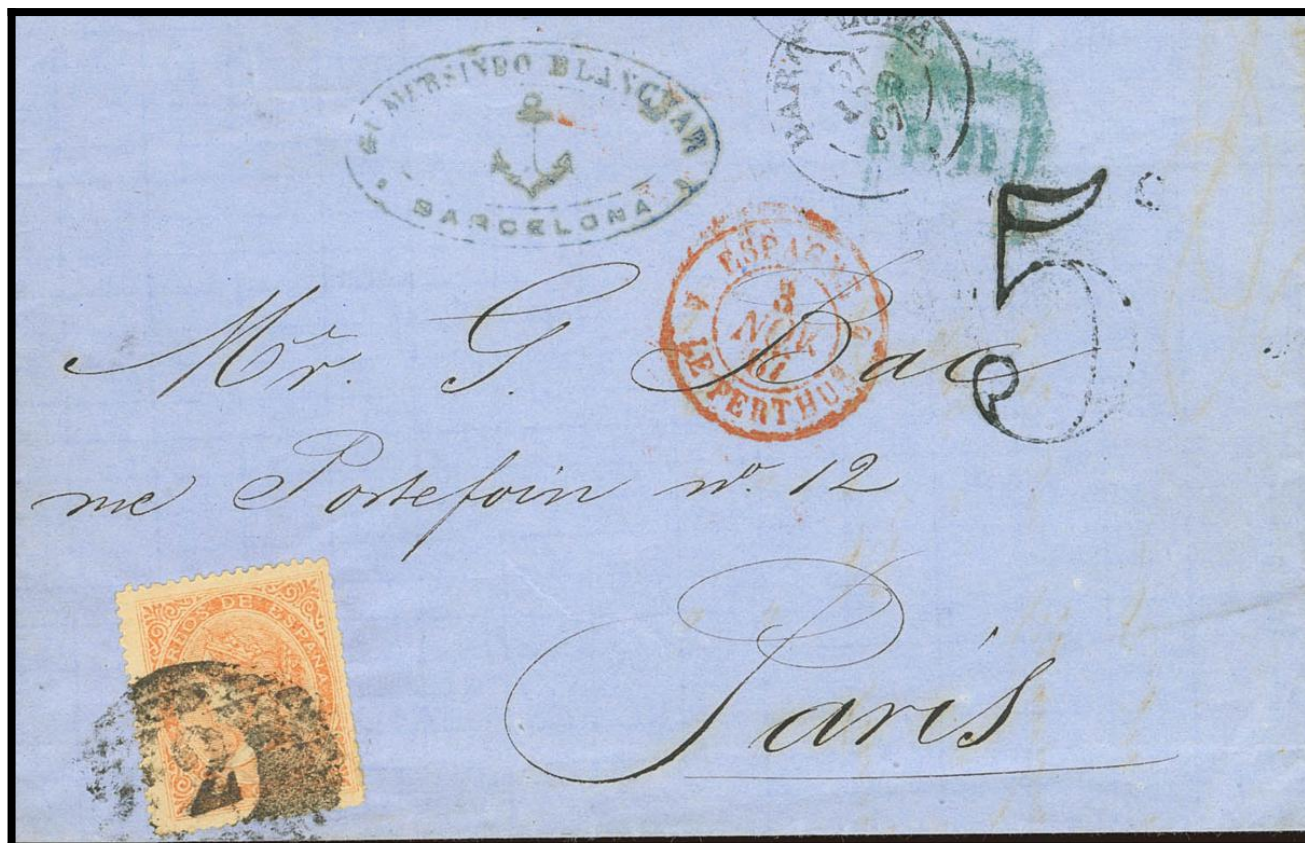 GUMERSINDO BLANCHAR
BARCELONA
BARCELONA
67
5 c
ESPAGNE
3
NOV.
LE PERTHUS
A
Mr. G. Bac
rue Portefoin nº. 12
Paris
CORREOS DE ESPAÑA
2